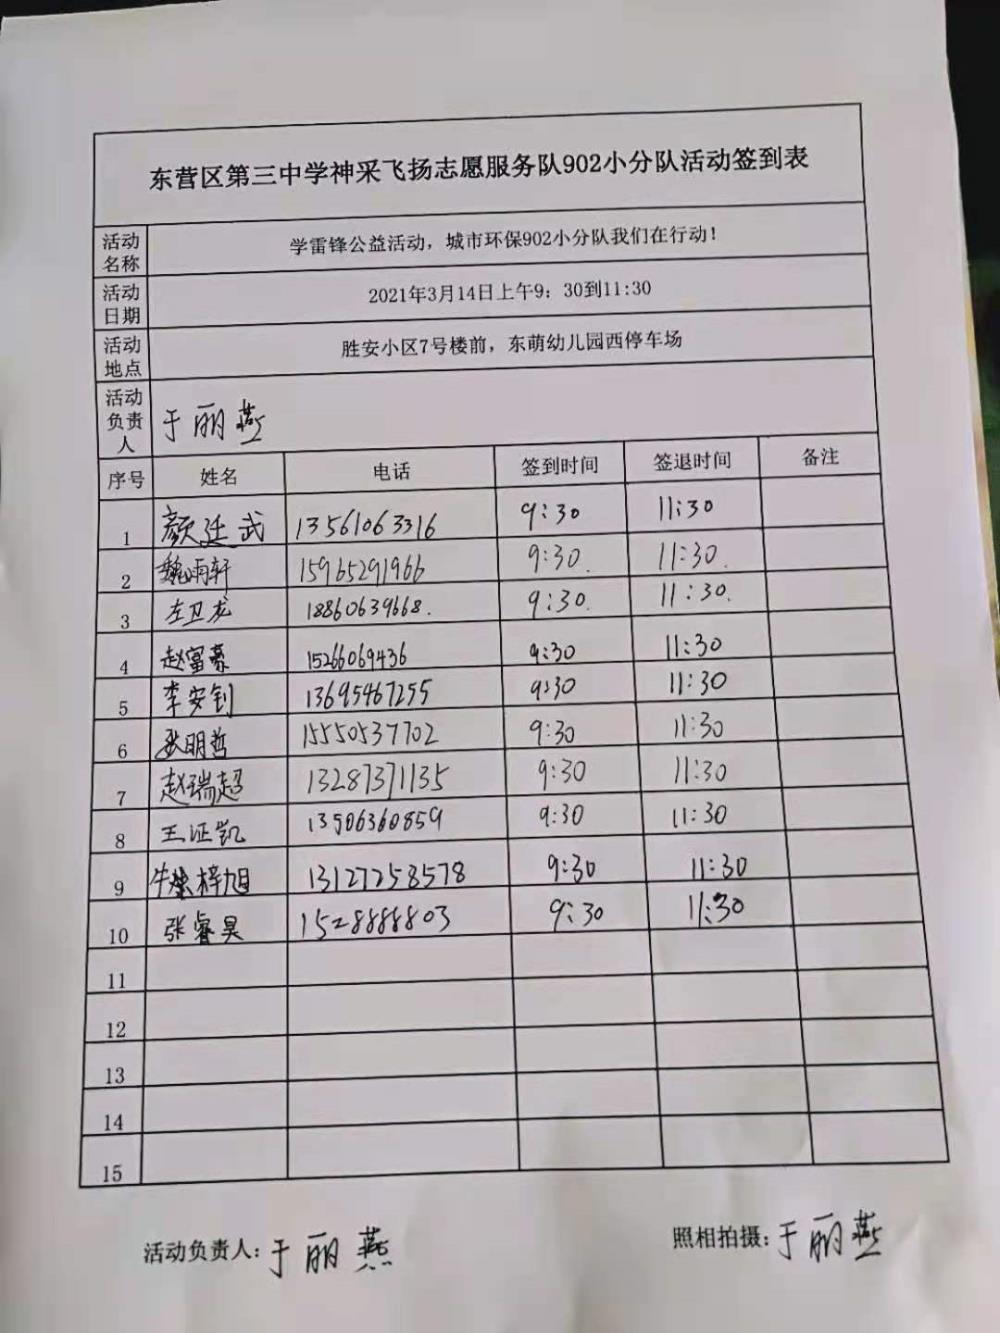 东营区第三中学神采飞扬志愿服务队902小分队活动签到表
活动名称 学雷锋公益活动，城市环保902小分队我们在行动！
活动日期 2021年3月14日上午9：30到11:30
活动地点 胜安小区7号楼前，东萌幼儿园西停车场
活动负责人 于丽燕
序号 姓名 电话 签到时间 签退时间 备注
1 颜廷武 13561063316 9:30 11:30
2 魏雨轩 15965291966 9:30. 11:30.
3 左卫龙 18860639668. 9:30. 11:30.
4 赵富豪 15266069436 9:30 11:30
5 李安钊 13695467255 9:30 11:30
6 张明哲 15550537702 9:30 11:30
7 赵瑞超 13287371135 9:30 11:30
8 王证凯 13506360859 9:30 11:30
9 牛梓旭 13127258578 9:30 11:30
10 张睿昊 1528888803 9:30 11:30
11
12
13
14
15
活动负责人：于丽燕 照相拍摄：于丽燕